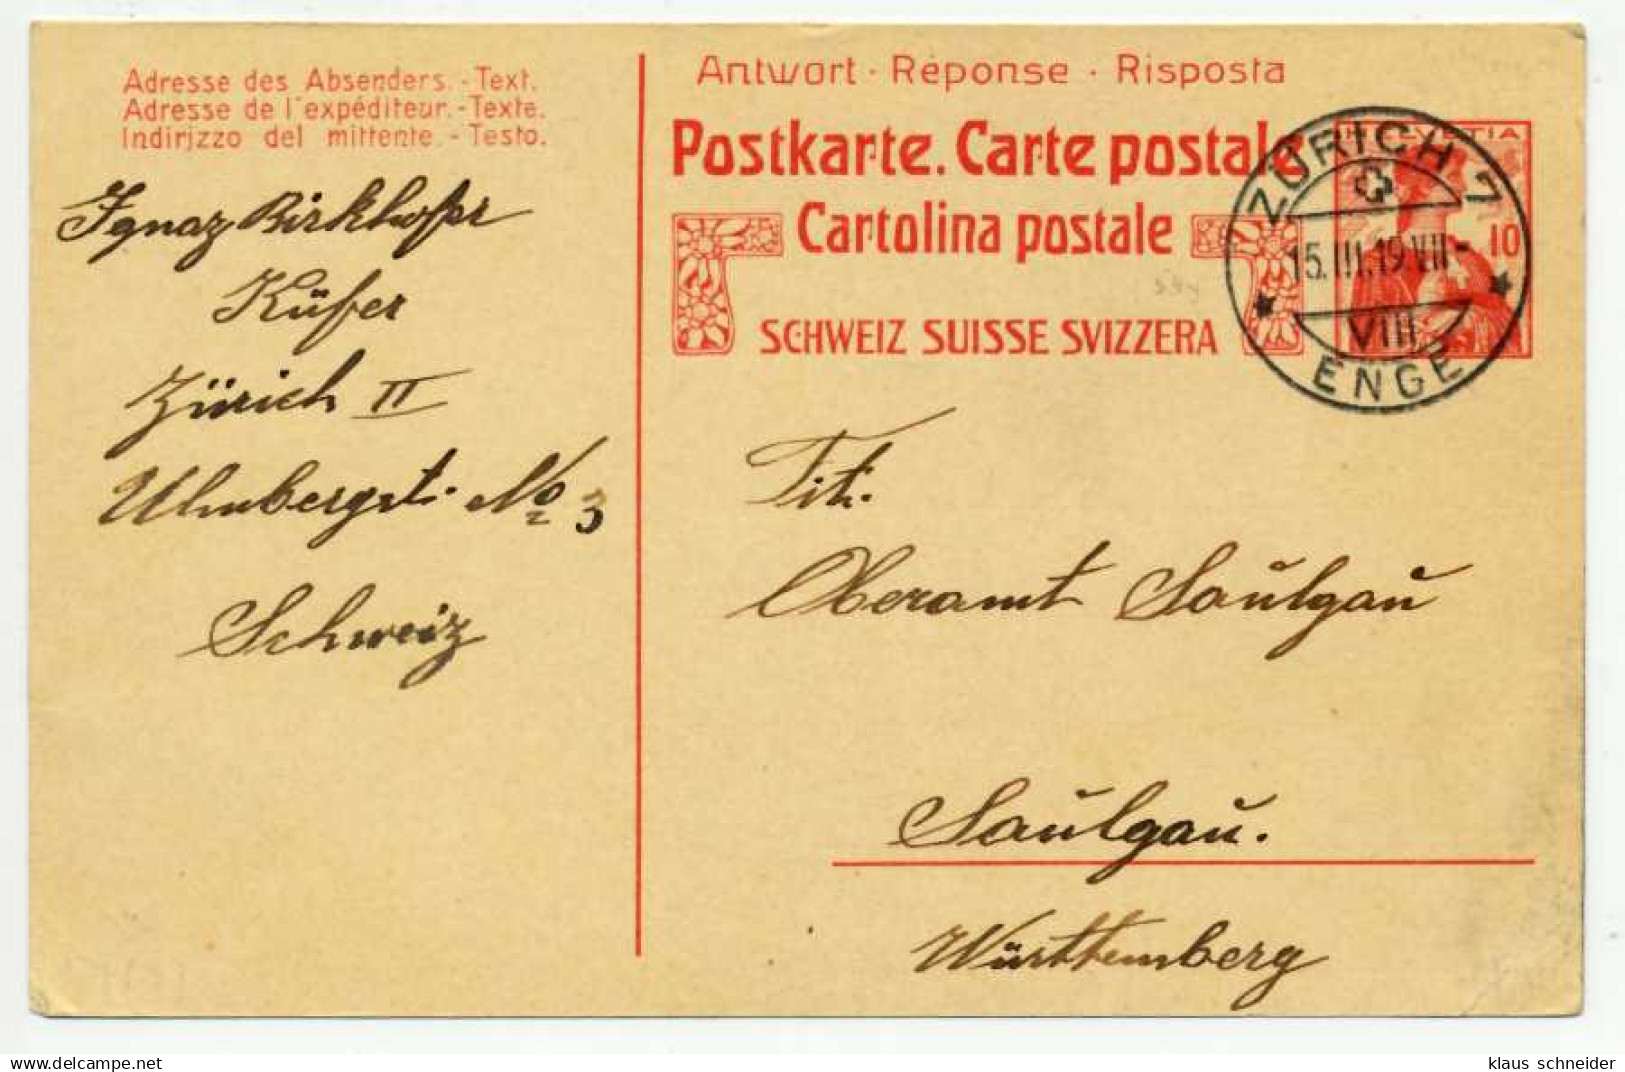 Adresse des Absenders.-Text.
Adresse de l'expéditeur.-Texte.
Indirizzo del mittente.-Testo.
Ignaz Birkhofer
Küfer
Zürich II
Ulmbergst. No 3
Schweiz
Antwort · Réponse · Risposta
Postkarte. Carte postale
Cartolina postale
SCHWEIZ SUISSE SVIZZERA
HELVETIA
10
ZÜRICH 7
15.III.19.VII-
VIII
ENGE
Tit.
Oberamt Saulgau
Saulgau.
Württemberg
www.delcampe.net
klaus schneider